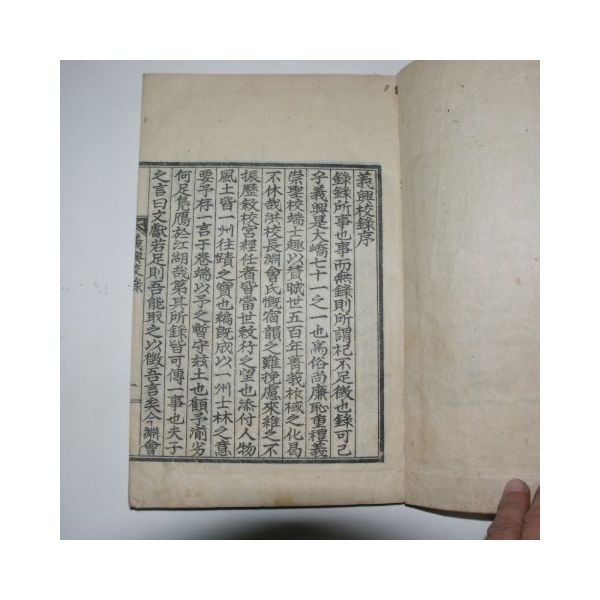 義興校錄序
錄錄所事也事而無錄則所謂杞不足徵也錄可已
乎義興是大嶠七十一之一也爲俗尚廉恥重禮義
崇聖校端士趣以贊 世五百年菁莪棫之化曷
不休哉洪校長淵會氏慨宿韻之難挽慮來雜之不
振歷敍校宮經任者皆當世敍行之望也添付人物
風土皆一州往蹟之寶也編旣成以一州士林之意
要予存一言于卷端以予之暫守玆土也顧予湔劣
何足鳧鴈於江湖哉第其所錄皆可傳一事也夫子
之言曰文獻若足則吾能取之以徵吾言矣今淵會
義興校錄
一